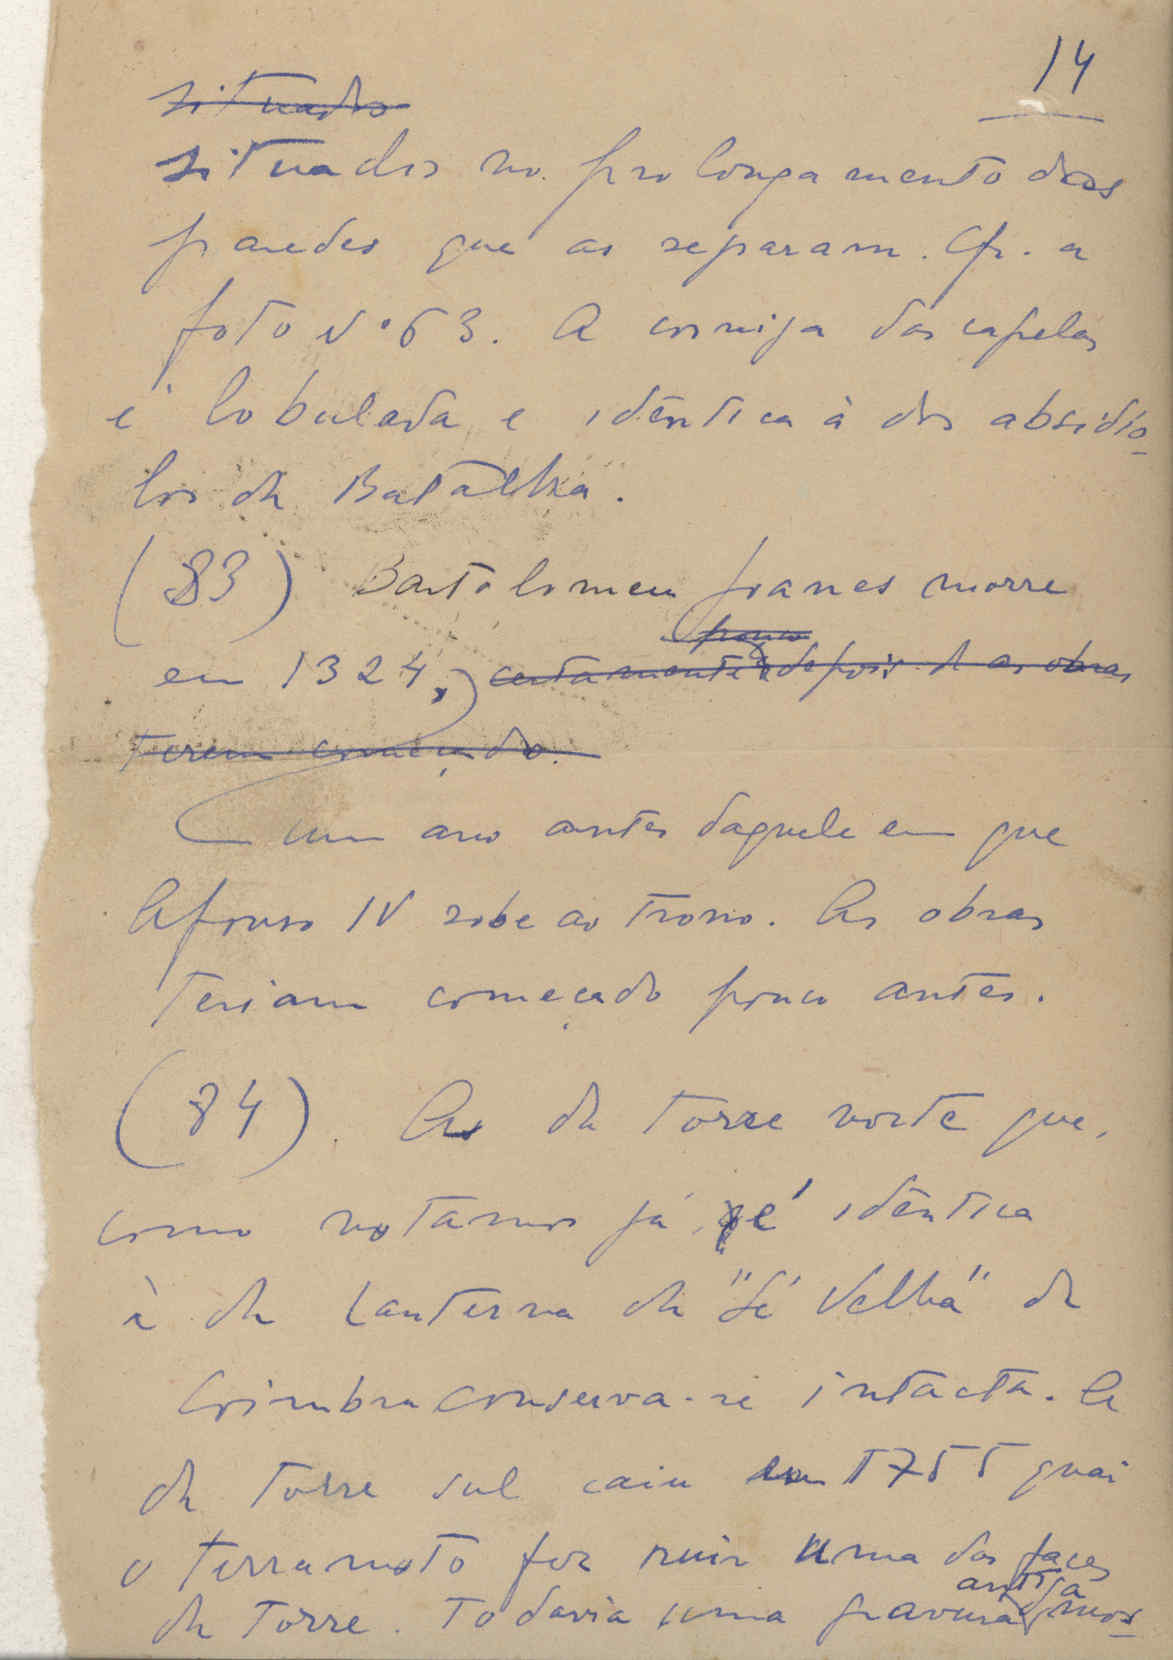 14
situados
situados no prolongamento das
paredes que as separam. Cfr. a
foto Nº 63. A cornija das capelas
é lobulada e idêntica à dos absidío-
los da Batalha.
(83) Bartolomeu Joanes morre
pouco
em 1324, certamente depois de as obras
terem começado.
um ano antes daquele em que
Afonso IV sobe ao trono. As obras
teriam começado pouco antes.
(84). As da torre norte que,
como notamos já, é idêntica
à da lanterna da "Sé Velha" de
Coimbra conserva-se intacta. A
da torre sul caiu em 1755 quai
o terramoto fez ruir uma das faces
antiga
da torre. Todavia uma gravura mos-